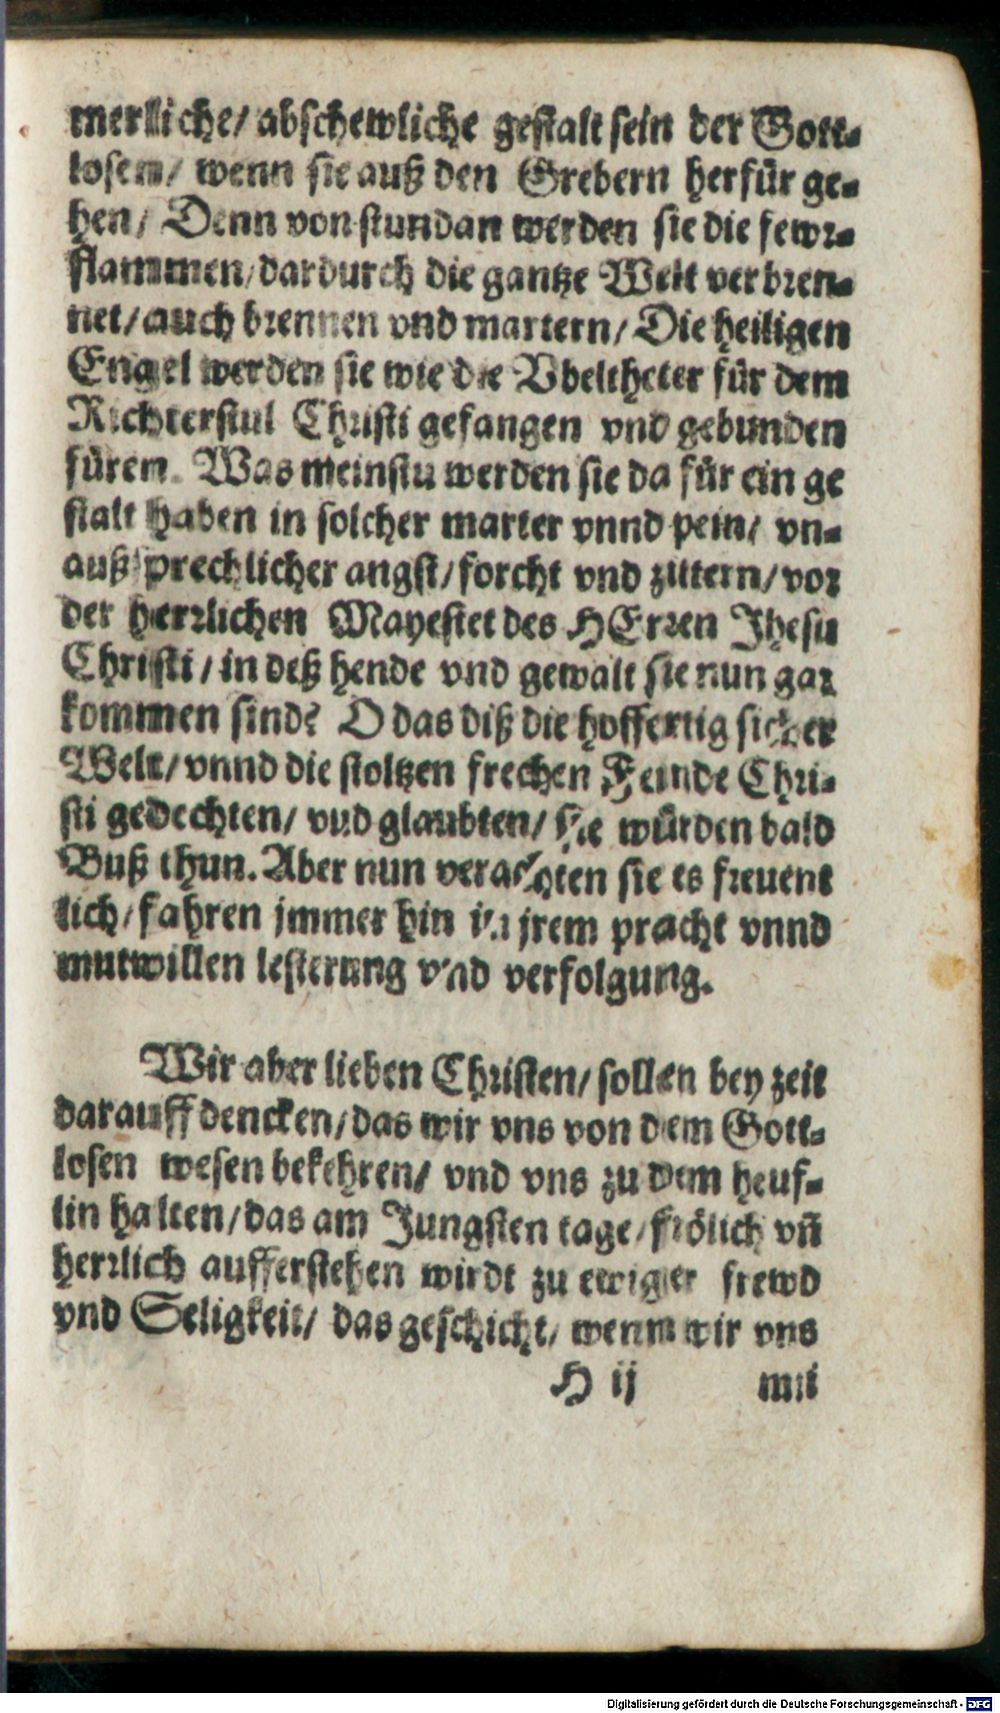 merliche/ abschewliche gestalt sein der Gott-
losen/ wenn sie auß den Grebern herfür ge-
hen/ Denn von stundan werden sie die fewr-
flammen/ dardurch die gantze Welt verbren-
net/ auch brennen vnd martern/ Die heiligen
Engel werden sie wie die Vbeltheter für dem
Richterstul Christi gefangen vnd gebunden
füren. Was meinstu werden sie da für ein ge
stalt haben in solcher marter vnnd pein/ vn-
außsprechlicher angst/ forcht vnd zittern/ vor
der herrlichen Mayestet des HErren Jhesu
Christi/ in deß hende vnd gewalt sie nun gar
kommen sind? O das diß die hoffertig sicher
Welt/ vnnd die stoltzen frechen Feinde Chri-
sti gedechten/ vnd glaubten/ sie würden bald
Buß thun. Aber nun verachten sie es freuent
lich/ fahren jmmer hin in jrem pracht vnnd
mutwillen lesterung vnd verfolgung.
Wir aber lieben Christen/ sollen bey zeit
darauff dencken/ das wir vns von dem Gott-
losen wesen bekehren/ vnd vns zu dem heuf-
lin halten/ das am Jungsten tage/ frölich vñ
herrlich aufferstehen wirdt zu ewiger frewd
vnd Seligkeit/ das geschicht/ wenn wir vns
H ij mit
Digitalisierung gefördert durch die Deutsche Forschungsgemeinschaft - DFG